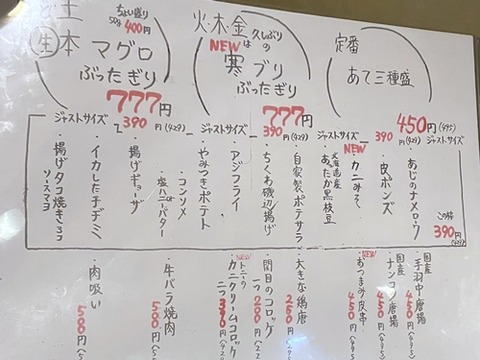 土
生本マグロ
ぶったぎり
ちょい盛り
50g 400円
777円
火・木・金
久しぶり
NEWは の
寒ブリ
ぶったぎり
777円
定番
あて三種盛
450円(495)
ジャストサイズ
390円(429)
ジャストサイズ
390円(429)
ジャストサイズ
390円(429)
ジャストサイズ
この枠
390円(429)
・あじのナメロウ
・皮ポンズ
NEW
・カニみそ
北海道産
・あたたか黒枝豆
・自家製ポテサラ
・ちくわ磯辺揚げ
・アジフライ
・やみつきポテト
コンソメ
塩ハニーバター
・揚げギョーザ
・イカしたチヂミ
・揚げタコ焼き
ソースマヨ
国産
手羽中唐揚 450円
国産
ナンコツ唐揚 450円
NEW
・おつまみ皮串 450円
・大きな鶏唐 250円
・関目のコロッケ 200円
NEW
・カニクリームコロッケ 390円
・牛バラ焼肉 500円
・肉吸い 500円